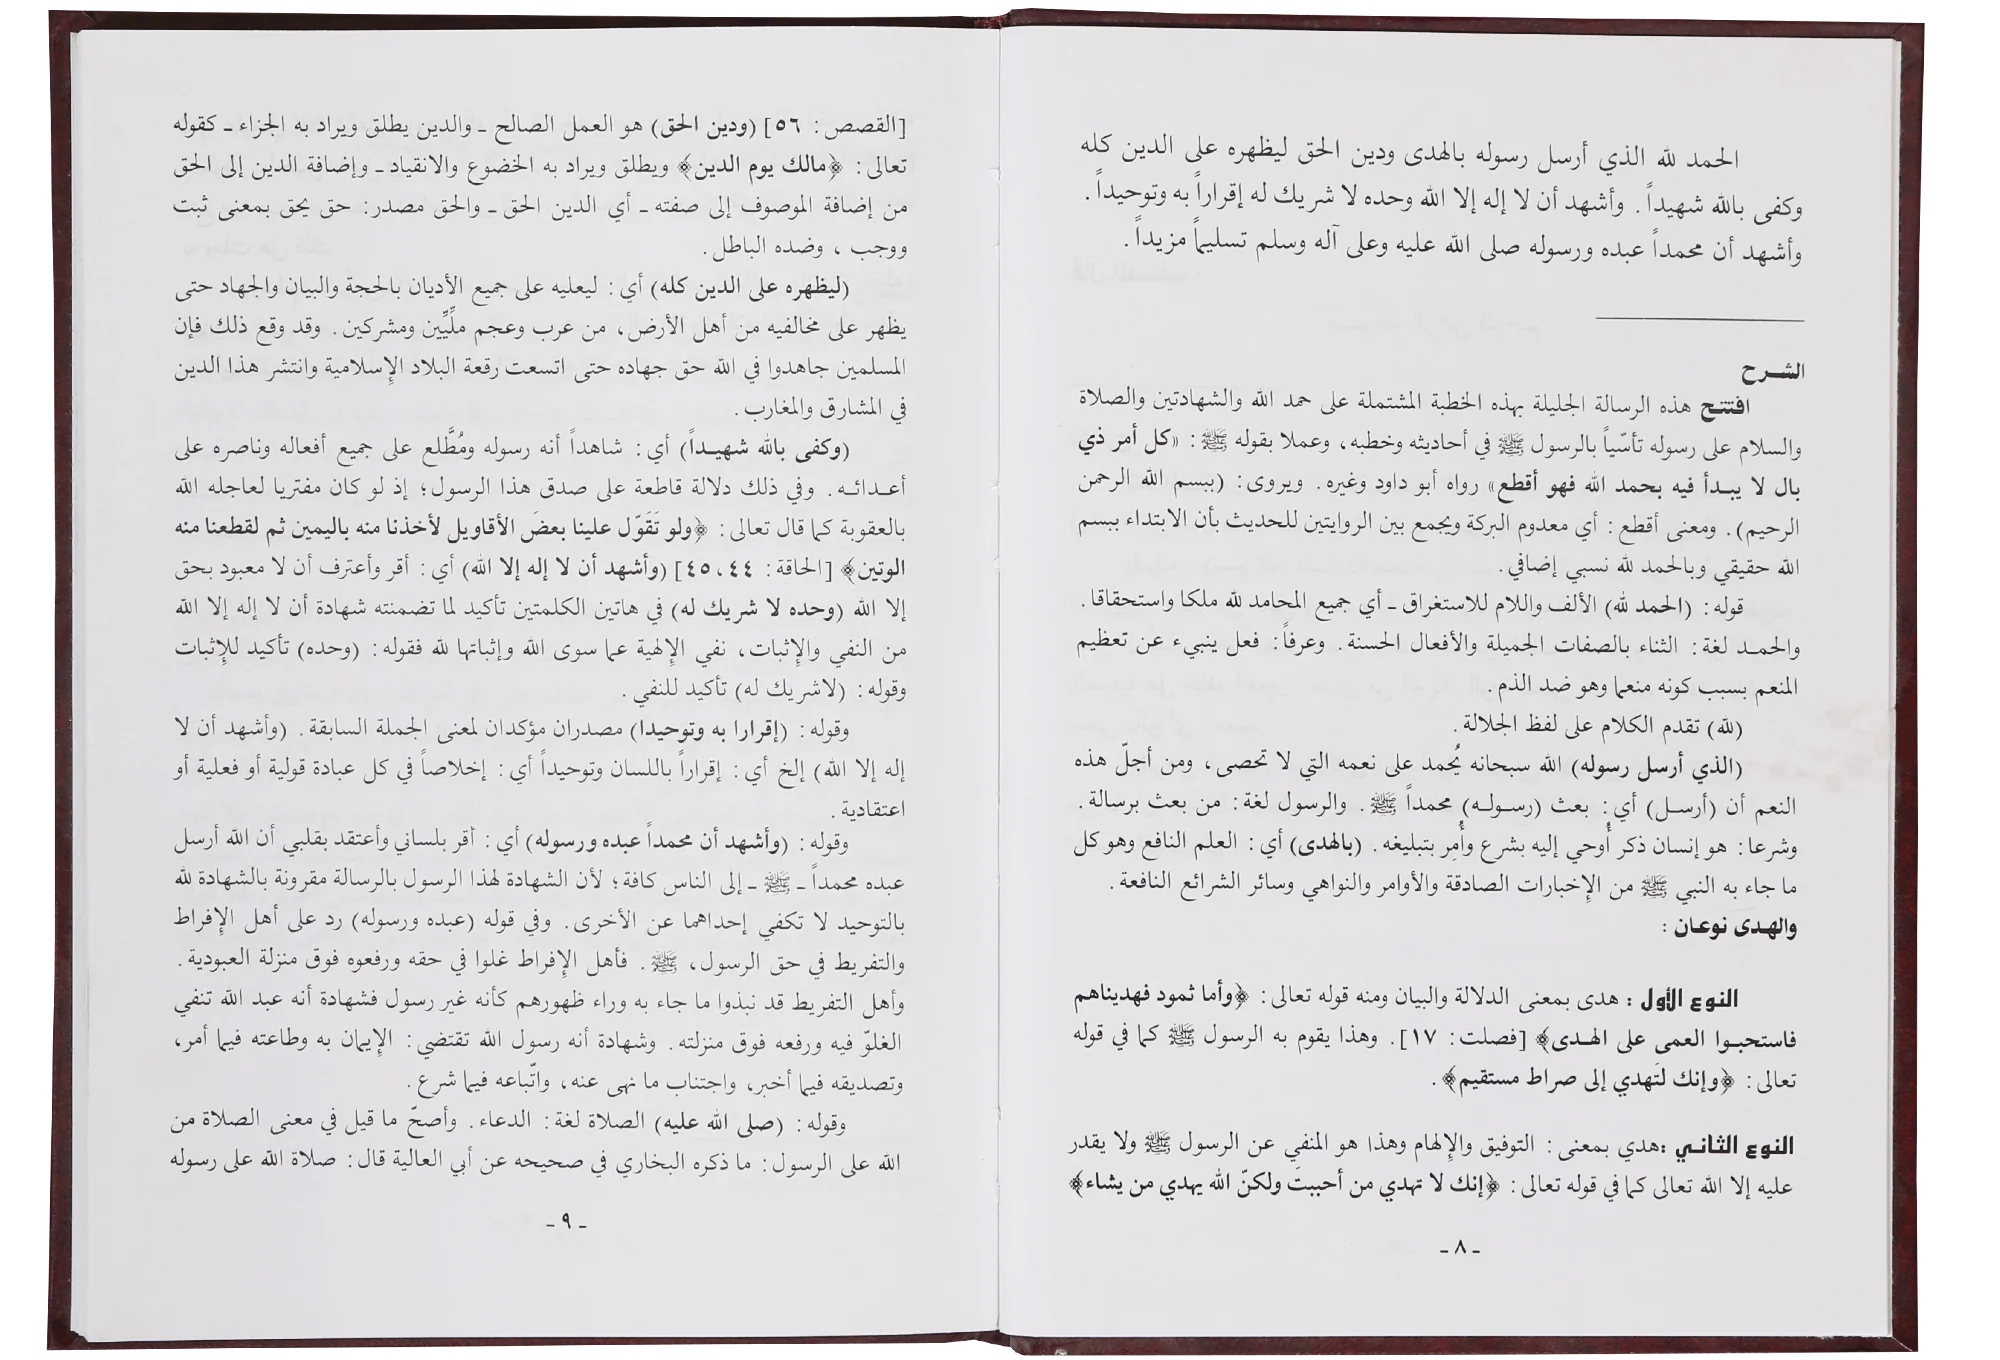 الحمد لله الذي أرسل رسوله بالهدى ودين الحق ليظهره على الدين كله
وكفى بالله شهيداً . وأشهد أن لا إله إلا الله وحده لا شريك له إقراراً به وتوحيداً .
وأشهد أن محمداً عبده ورسوله صلى الله عليه وعلى آله وسلم تسليماً مزيداً .
الشــرح
افتتــح هذه الرسالة الجليلة بهذه الخطبة المشتملة على حمد الله والشهادتين والصلاة
والسلام على رسوله تأسّياً بالرسول ﷺ في أحاديثه وخطبه، وعملا بقوله ﷺ : «كل أمر ذي
بال لا يبـدأ فيه بحمد الله فهو أقطع» رواه أبو داود وغيره . ويروى : (ببسم الله الرحمن
الرحيم) . ومعنى أقطع : أي معدوم البركة ويجمع بين الروايتين للحديث بأن الابتداء ببسم
الله حقيقي وبالحمد لله نسبي إضافي .
قوله : (الحمد لله) الألف واللام للاستغراق ـ أي جميع المحامد لله ملكا واستحقاقا .
والحمـد لغة : الثناء بالصفات الجميلة والأفعال الحسنة . وعرفاً : فعل ينبيء عن تعظيم
المنعم بسبب كونه منعما وهو ضد الذم .
(لله) تقدم الكلام على لفظ الجلالة .
(الذي أرسل رسوله) الله سبحانه يُحمد على نعمه التي لا تحصى، ومن أجلّ هذه
النعم أن (أرسـل) أي : بعث (رسـولـه) محمداً ﷺ . والرسول لغة : من بعث برسالة .
وشرعا : هو إنسان ذكر أُوحي إليه بشرع وأُمِر بتبليغه . (بالهدى) أي : العلم النافع وهو كل
ما جاء به النبي ﷺ من الإخبارات الصادقة والأوامر والنواهي وسائر الشرائع النافعة .
والهـدى نوعـان :
النوع الأول : هدى بمعنى الدلالة والبيان ومنه قوله تعالى : ﴿وأما ثمود فهديناهم
فاستحبـوا العمى على الهـدى﴾ [فصلت : ١٧] . وهذا يقوم به الرسول ﷺ كما في قوله
تعالى : ﴿وإنك لتَهدي إلى صراط مستقيم﴾ .
النوع الثانـي :هدي بمعنى : التوفيق والإلهام وهذا هو المنفي عن الرسول ﷺ ولا يقدر
عليه إلا الله تعالى كما في قوله تعالى : ﴿إنك لا تهدي من أحببتَ ولكنّ الله يهدي من يشاء﴾
ـ ٨ ـ
[القصص : ٥٦] (ودين الحق) هو العمل الصالح ـ والدين يطلق ويراد به الجزاء ـ كقوله
تعالى : ﴿مالك يوم الدين﴾ ويطلق ويراد به الخضوع والانقياد ـ وإضافة الدين إلى الحق
من إضافة الموصوف إلى صفته ـ أي الدين الحق ـ والحق مصدر : حق يحق بمعنى ثبت
ووجب ، وضده الباطل .
(ليظهره على الدين كله) أي : ليعليه على جميع الأديان بالحجة والبيان والجهاد حتى
يظهر على مخالفيه من أهل الأرض، من عرب وعجم ملِّيِّين ومشركين . وقد وقع ذلك فإن
المسلمين جاهدوا في الله حق جهاده حتى اتسعت رقعة البلاد الإسلامية وانتشر هذا الدين
في المشارق والمغارب .
(وكفى بالله شهيـداً) أي : شاهداً أنه رسوله ومُطَّلع على جميع أفعاله وناصره على
أعـدائـه . وفي ذلك دلالة قاطعة على صدق هذا الرسول؛ إذ لو كان مفتريا لعاجله الله
بالعقوبة كما قال تعالى : ﴿ولو تَقَوّل علينا بعضَ الأقاويل لأخذنا منه باليمين ثم لقطعنا منه
الوتين﴾ [الحاقة : ٤٤، ٤٥] (وأشهد أن لا إله إلا الله) أي : أقر وأعترف أن لا معبود بحق
إلا الله (وحده لا شريك له) في هاتين الكلمتين تأكيد لما تضمنته شهادة أن لا إله إلا الله
من النفي والإثبات، نفي الإلهية عما سوى الله وإثباتها لله فقوله : (وحده) تأكيد للإثبات
وقوله : (لاشريك له) تأكيد للنفي .
وقوله : (إقرارا به وتوحيدا) مصدران مؤكدان لمعنى الجملة السابقة . (وأشهد أن لا
إله إلا الله) إلخ أي : إقراراً باللسان وتوحيداً أي : إخلاصاً في كل عبادة قولية أو فعلية أو
اعتقادية .
وقوله : (وأشهد أن محمداً عبده ورسوله) أي : أقر بلساني وأعتقد بقلبي أن الله أرسل
عبده محمداً ـ ﷺ ـ إلى الناس كافة؛ لأن الشهادة لهذا الرسول بالرسالة مقرونة بالشهادة لله
بالتوحيد لا تكفي إحداهما عن الأخرى . وفي قوله (عبده ورسوله) رد على أهل الإفراط
والتفريط في حق الرسول، ﷺ . فأهل الإفراط غلوا في حقه ورفعوه فوق منزلة العبودية .
وأهل التفريط قد نبذوا ما جاء به وراء ظهورهم كأنه غير رسول فشهادة أنه عبد الله تنفي
الغلوّ فيه ورفعه فوق منزلته . وشهادة أنه رسول الله تقتضي : الإيمان به وطاعته فيما أمر،
وتصديقه فيما أخبر، واجتناب ما نهى عنه، واتّباعه فيما شرع .
وقوله : (صلى الله عليه) الصلاة لغة : الدعاء . وأصحّ ما قيل في معنى الصلاة من
الله على الرسول : ما ذكره البخاري في صحيحه عن أبي العالية قال : صلاة الله على رسوله
ـ ٩ ـ